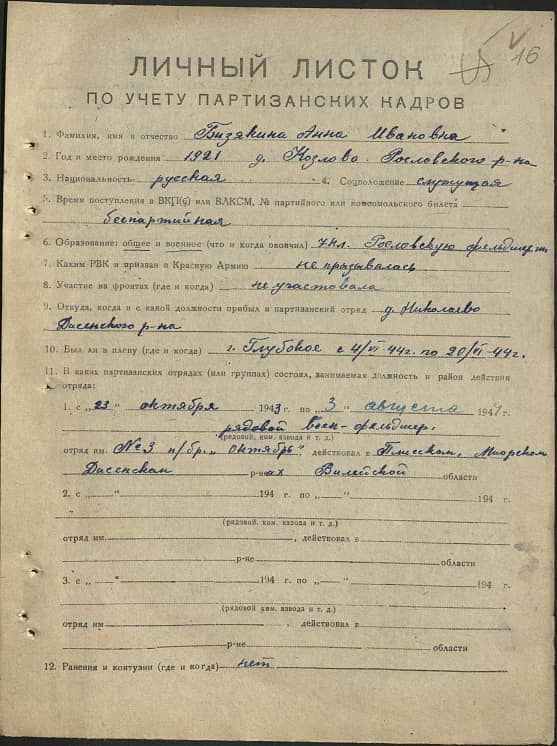 16
ЛИЧНЫЙ ЛИСТОК
ПО УЧЕТУ ПАРТИЗАНСКИХ КАДРОВ
1. Фамилия, имя и отчество Бизякина Анна Ивановна
2. Год и место рождения 1921 д. Козлово Рославского р-на
3. Национальность русская 4. Соцположение служущая
5. Время поступления в ВКП(б) или ВЛКСМ, № партийного или комсомольского билета
беспартийная
6. Образование: общее и военное (что и когда окончил) 7 кл. Рословскую фельдшер.
7. Каким РВК и призван в Красную Армию не призывалась
8. Участие на фронтах (где и когда) не участовала
9. Откуда, когда и с какой должности прибыл в партизанский отряд д. Николаево
Дисенского р-на
10. Был ли в плену (где и когда) г. Глубокое с 4/VI-44г. по 20/VI-44г.
11. В каких партизанских отрядах (или группах) состоял, занимаемая должность и район действия
отряда:
1. с „23" октября 1943 г. по „3" августа 1944 г.
рядовой воен-фельдшер.
(рядовой, ком. взвода и т. д.)
отряд им. №3 п/бр. „Октябрь" действовал в Плисском, Миорском
Дисенском р-нах Вилейской области
2. с „ " 194 г. по „ " 194 г.
(рядовой, ком. взвода и т. д.)
отряд им , действовал в
р-не области
3. с „ " 194 г. по „ " 194 г.
(рядовой, ком. взвода и т. д.)
отряд им , действовал в
р-не области
12. Ранения и контузии (где и когда) нет